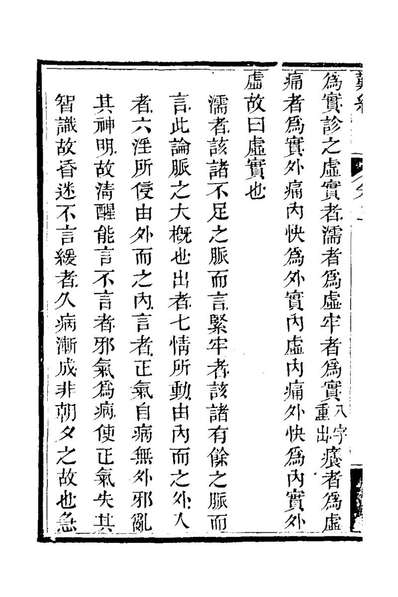 難經
為實診之虛實者濡者為虛牢者為實入字重出癢者為虛
痛者為實外痛內快為外實內虛內痛外快為內實外
虛故曰虛實也
濡者該諸不足之脈而言緊牢者該諸有餘之脈而
言此論脈之大槪也出者七情所動由內而之外入
者六淫所侵由外而之內言者正氣自病無外邪亂
其神明故淸醒能言不言者邪氣為病使正氣失其
智識故昏迷不言緩者久病漸成非朝夕之故也急